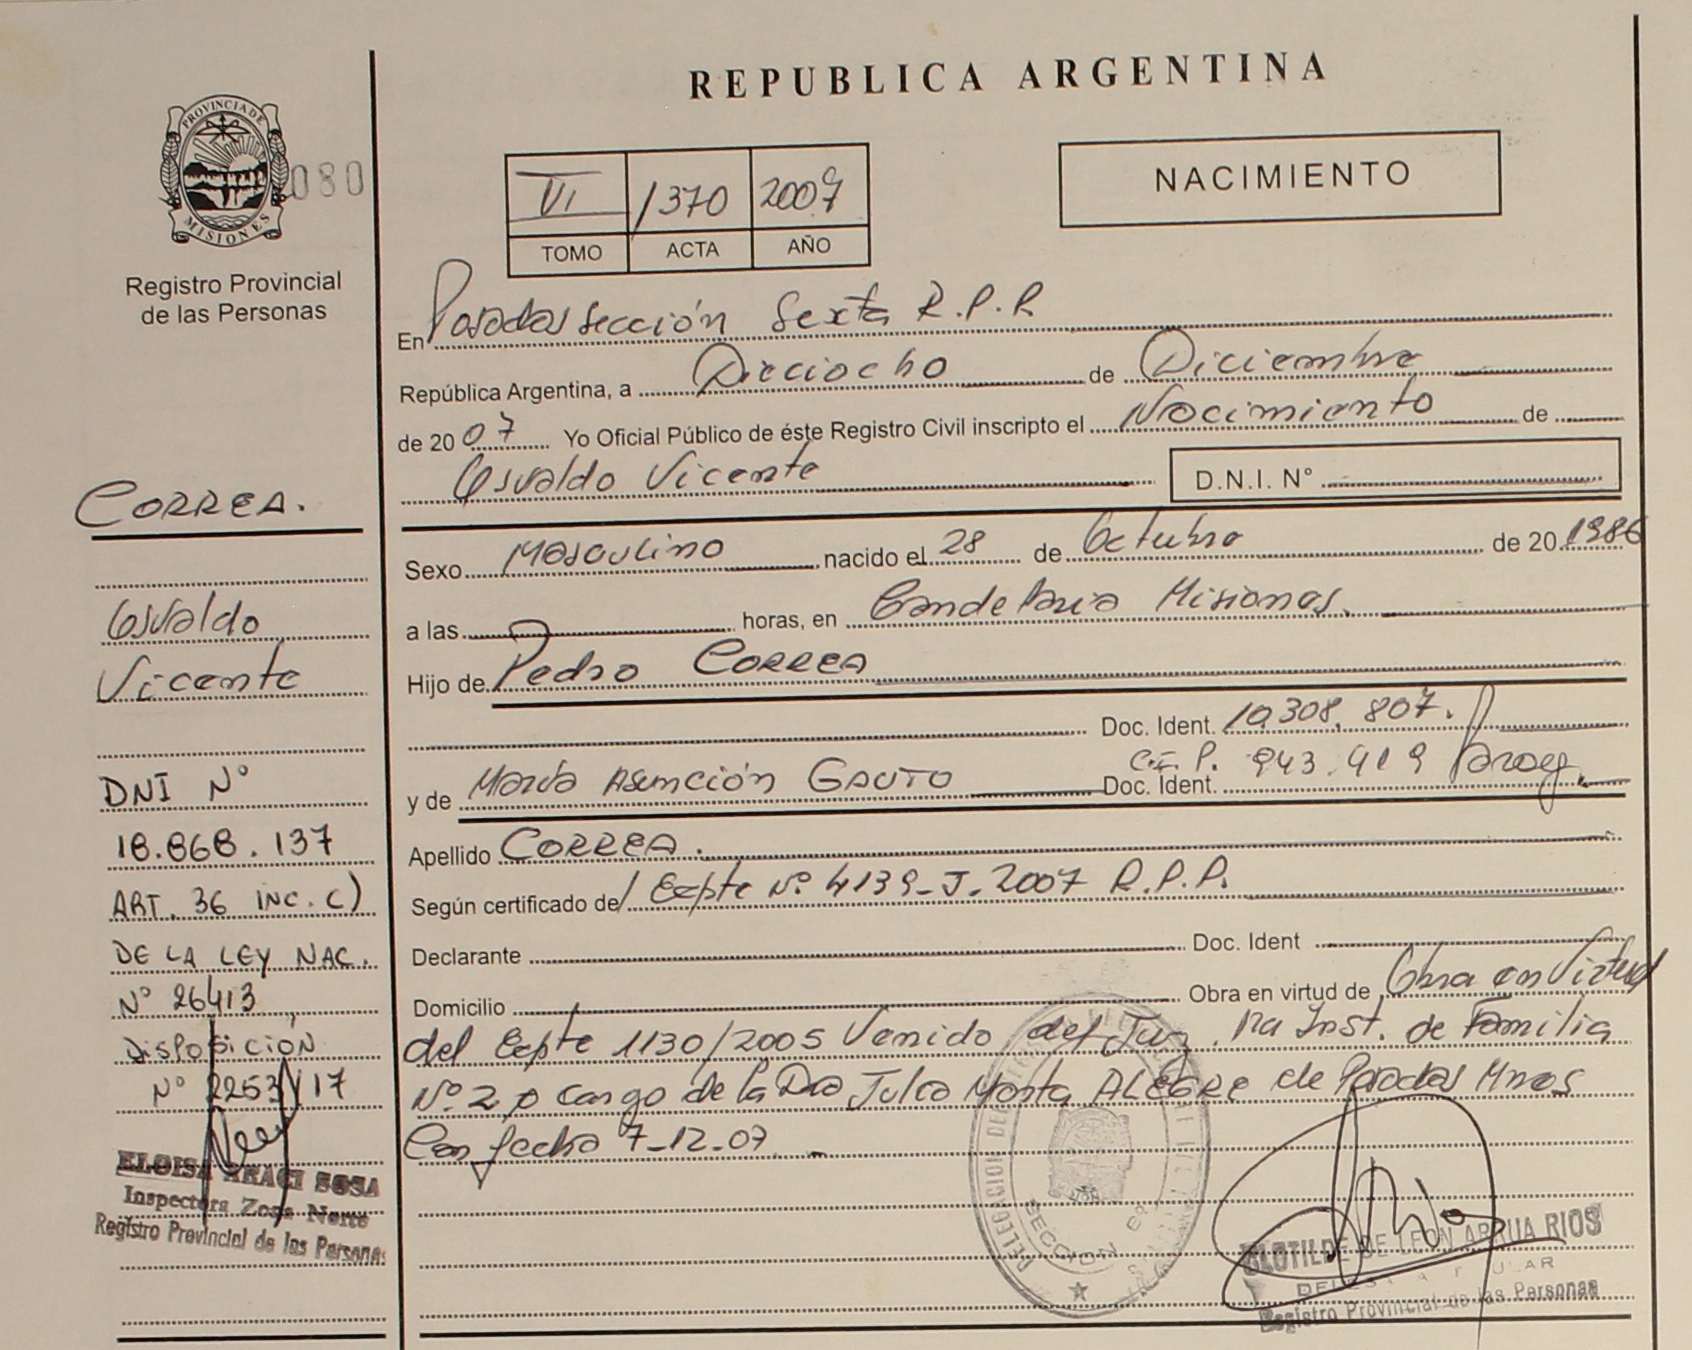 REPUBLICA ARGENTINA
PROVINCIA DE
MISIONES
080
Registro Provincial
de las Personas
VI 1370 2007
TOMO ACTA AÑO
NACIMIENTO
En Posadas Sección Sexta R.P.P.
República Argentina, a Dieciocho de Diciembre
de 20 07 Yo Oficial Público de éste Registro Civil inscripto el Nacimiento de
Osvaldo Vicente D.N.I. N°
Sexo Masculino nacido el 28 de Octubre de 20 1986
a las horas, en Candelaria Misiones.
Hijo de Pedro CORREA
Doc. Ident. 10.308.807.
y de María Asunción GAUTO Doc. Ident. C.I. P. 943.919 Parag.
Apellido CORREA.
Según certificado de Expte N° 4139-J-2007 R.P.P.
Declarante Doc. Ident
Domicilio Obra en virtud de Obra en Virtud
del Expte 1130/2005 Venido del Juz. 1ra Inst. de Familia
N° 2 a cargo de la Dra Julia Marta ALEGRE de Posadas Mnes
Con fecha 7-12-07.
CORREA.
Osvaldo
Vicente
DNI N°
18.868.137
ART. 36 INC. C)
DE LA LEY NAC.
N° 26413,
DISPOSICIÓN
N° 2253/17
ELOISA ARACI SOSA
Inspectora Zona Norte
Registro Provincial de las Personas
SECCION
CLOTILDE DE LEON ARRUA RIOS
Registro Provincial de las Personas